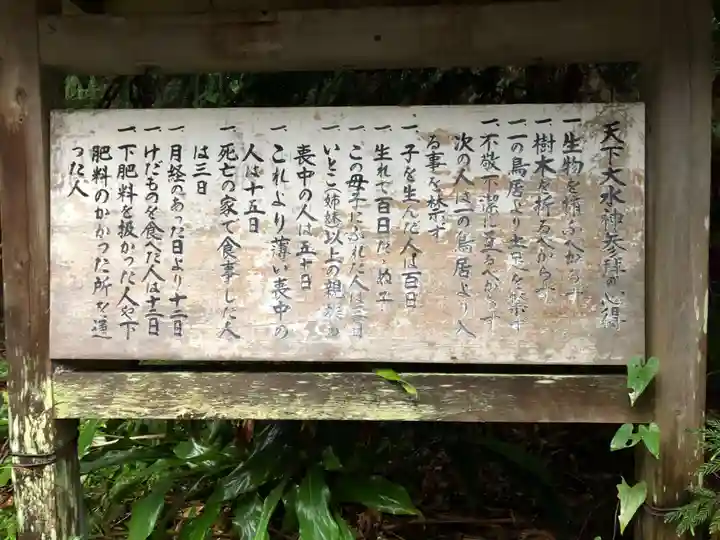 天下大水神参拝の心得
一 生物を捕ふべからず
一 樹木を折るべからず
一 一の鳥居より土足を禁ず
一 不敬不潔に亘るべからず
次の人は一の鳥居より入
る事を禁ず
一 子を生んだ人は百日
一 生れて百日たゝぬ子
一 この母子にふれた人は三日
一 いとこ姉妹以上の親族の
喪中の人は五十日
一 これより薄い喪中の
人は十五日
一 死亡の家で食事した人
は三日
一 月経のあった日より十二日
一 けだものを食べた人は十二日
一 下肥料を扱かった人や下
肥料のかかった所を通
った人